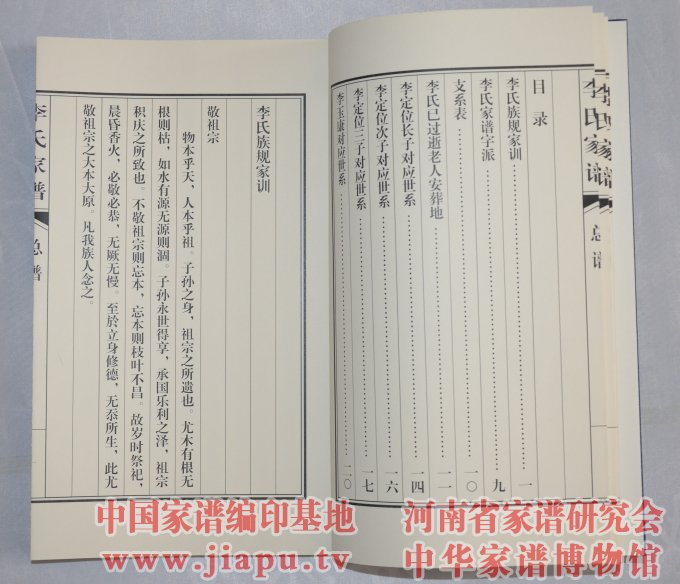 李氏家谱
总谱
目录
李氏族规家训 一
李氏家谱字派 九
支系表 一〇
李氏已过逝老人安葬地 一一
李定位长子对应世系 一四
李定位次子对应世系 一六
李定位三子对应世系 一七
李玉康对应世系 二〇
李氏族规家训
敬祖宗
物本乎天，人本乎祖。子孙之身，祖宗之所遗也。尤木有根无
根则枯，如水有源无源则涸。子孙永世得享，承国乐利之泽，祖宗
积庆之所致也。不敬祖宗则忘本，忘本则枝叶不昌。故岁时祭祀，
晨昏香火，必敬必恭，无厥无慢。至於立身修德，无忝所生，此尤
敬祖宗之大本大原。凡我族人念之。
李氏家谱
总谱
中国家谱编印基地 河南省家谱研究会
www.jiapu.tv 中华家谱博物馆